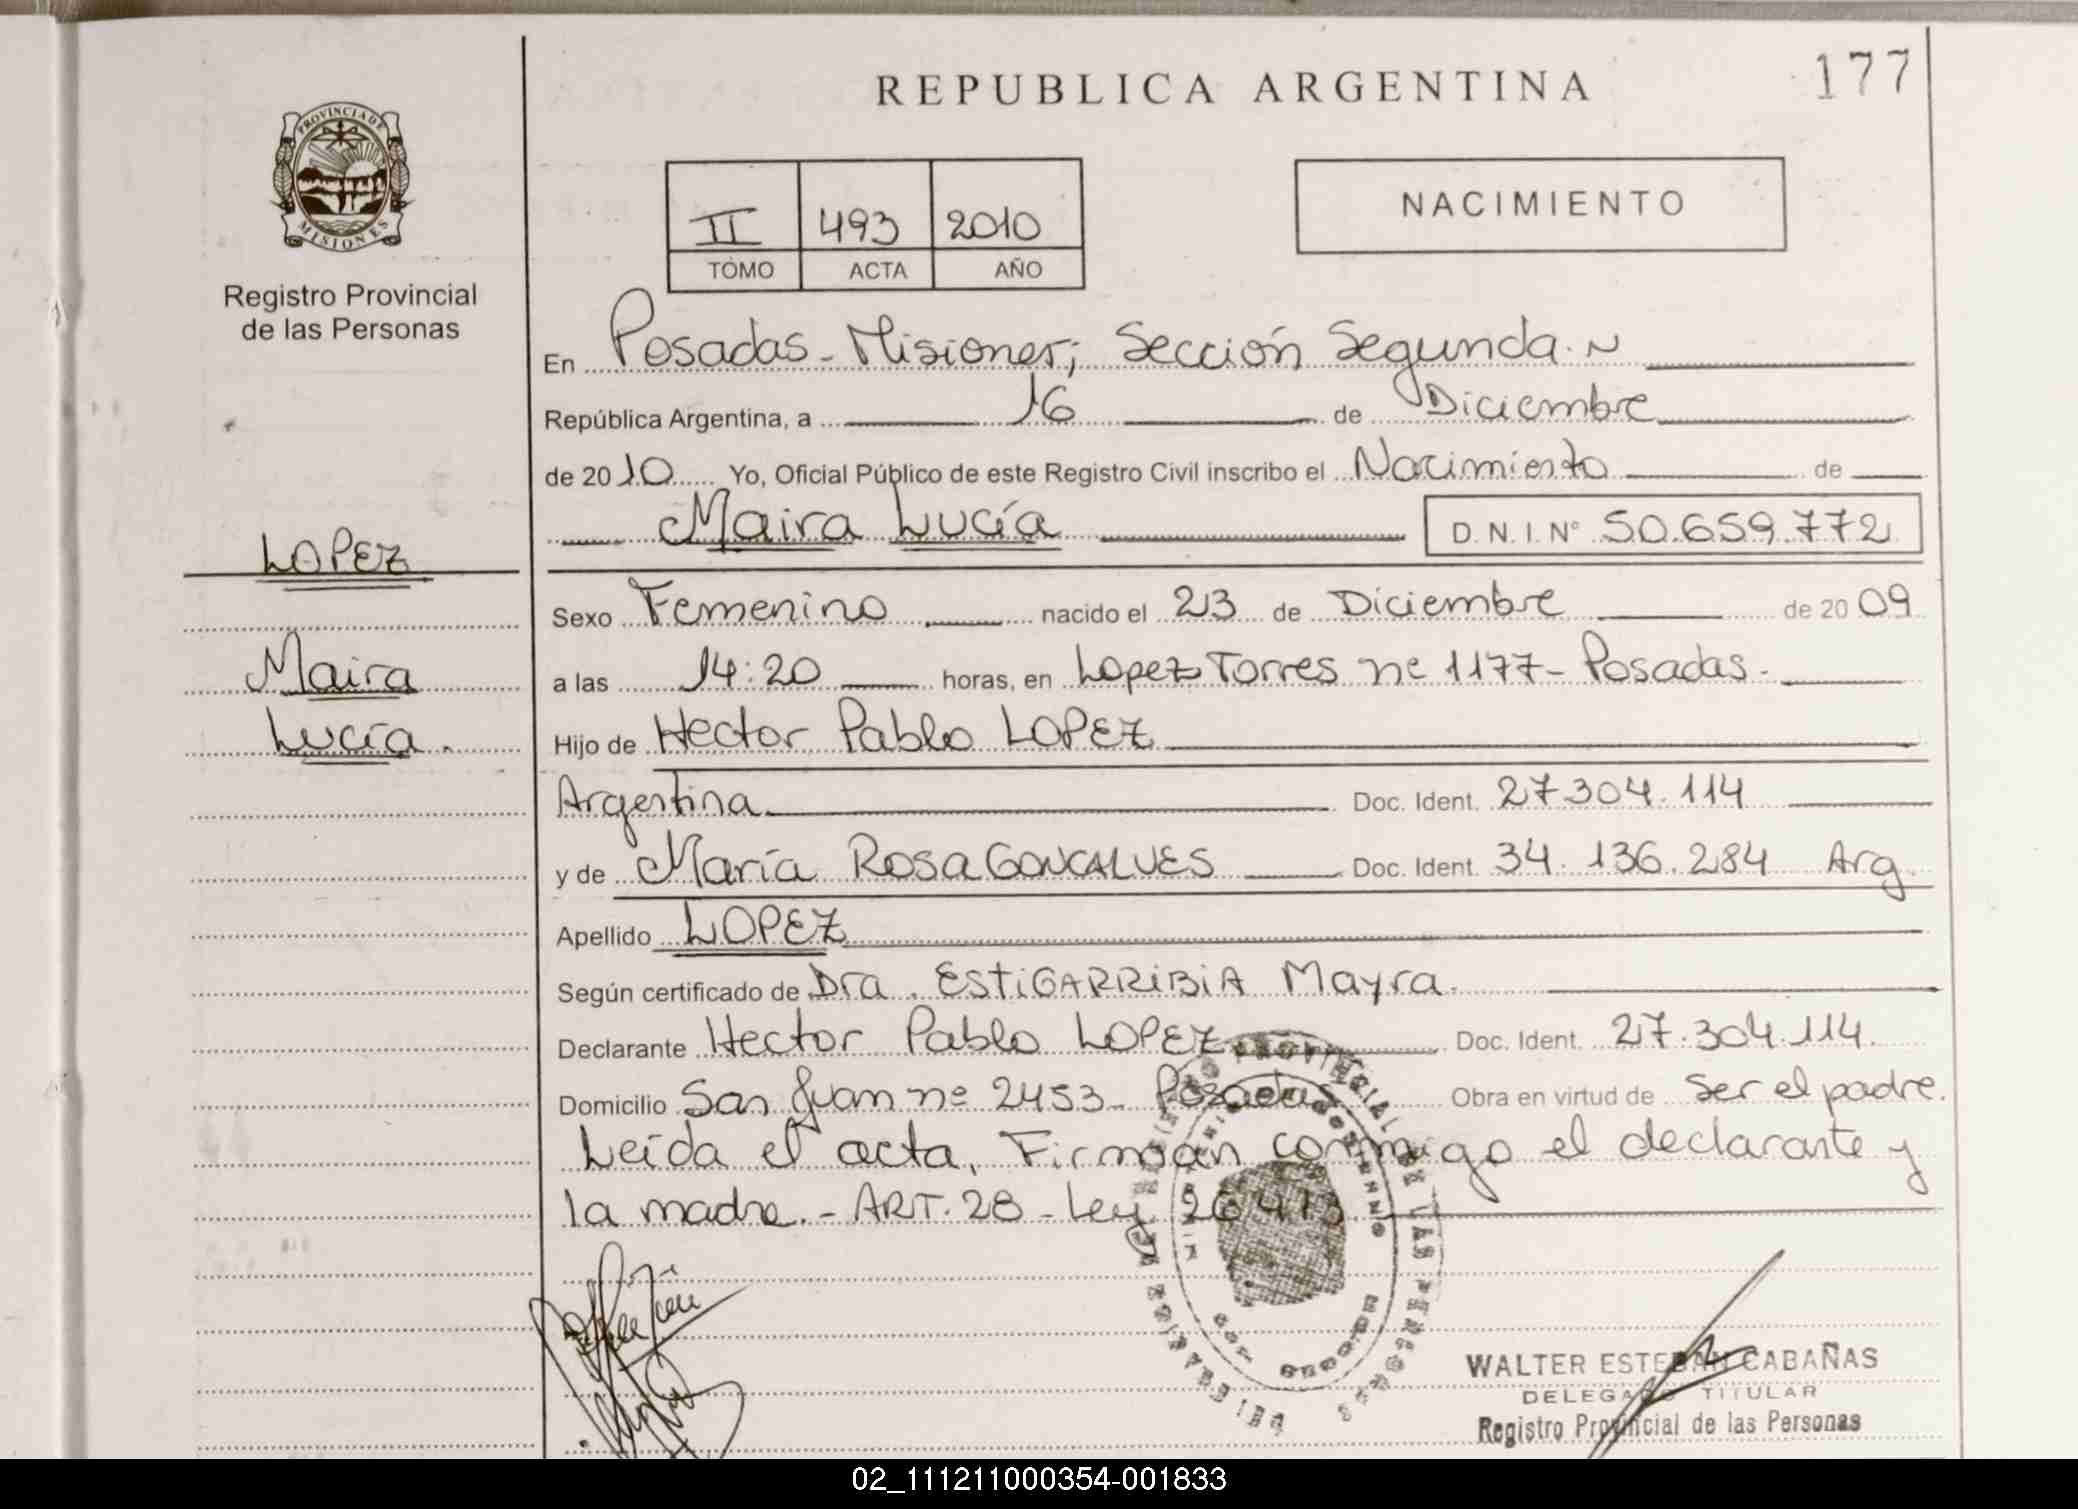 REPUBLICA ARGENTINA
177
PROVINCIA DE
MISIONES
Registro Provincial
de las Personas
II 493 2010
TOMO ACTA AÑO
NACIMIENTO
En Posadas - Misiones; Sección Segunda. N
República Argentina, a 16 de Diciembre
de 2010 Yo, Oficial Público de este Registro Civil inscribo el Nacimiento de
Maira Lucía D.N.I. N° 50.659.772
LOPEZ
Maira
Lucía.
Sexo Femenino nacido el 23 de Diciembre de 2009
a las 14:20 horas, en Lopez Torres nº 1177 - Posadas -
Hijo de Hector Pablo LOPEZ
Argentina Doc. Ident. 27.304.114
y de María ROSA GONCALVES Doc. Ident. 34.136.284 Arg.
Apellido LOPEZ
Según certificado de Dra. ESTIGARRIBIA Mayra.
Declarante Hector Pablo LOPEZ Doc. Ident. 27.304.114.
Domicilio San Juan nº 2453 - Posadas Obra en virtud de ser el padre.
Leída el acta, Firman conmigo el declarante y
la madre. - ART. 28 - Ley 26413.
WALTER ESTEBAN CABAÑAS
DELEGADO TITULAR
Registro Provincial de las Personas
02_111211000354-001833